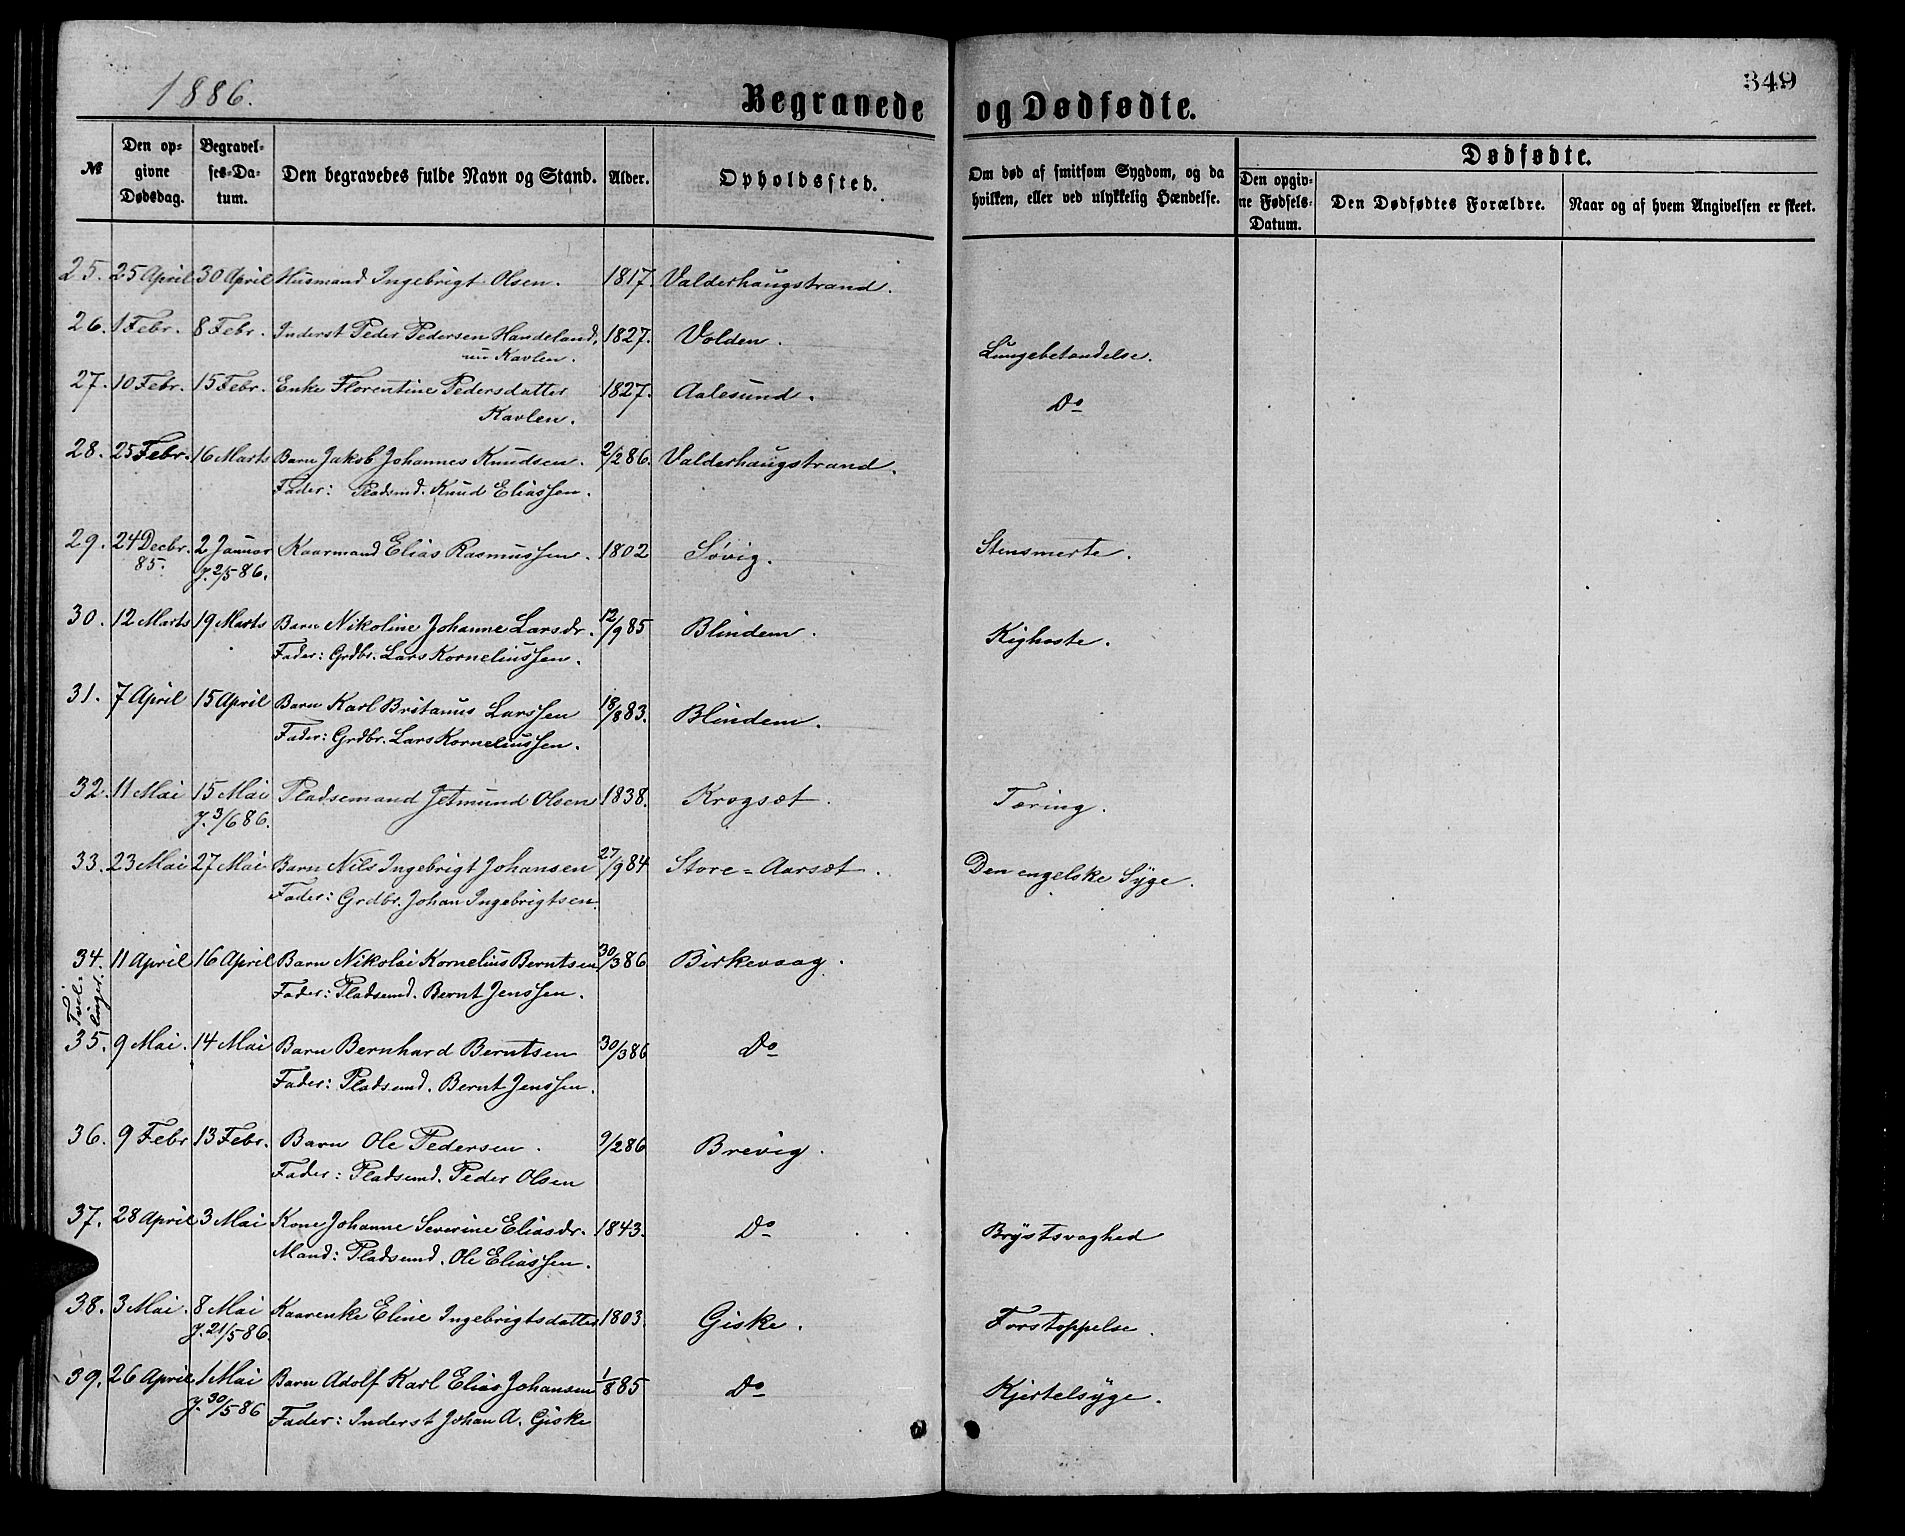 1886.
Begravede og Dødfødte.
349
№
Den opgivne Dødsdag.
Begravelses-Datum.
Den begravedes fulde Navn og Stand.
Alder.
Opholdssted.
Om død af smitsom Sygdom, og da hvilken, eller ved ulykkelig Hændelse.
Dødfødte.
Den opgivne Fødsels-Datum.
Den Dødfødtes Forældre.
Naar og af hvem Angivelsen er skeet.
25. 25 April 30 April Husmand Ingebrigt Olsen. 1817. Valderhaugstrand.
26. 1 Febr. 8 Febr. Inderst Peder Pedersen Handeland, 1827. Volden. Lungebetændelse.
Kavlen.
27. 10 Febr. 15 Febr. Enke Florentine Pedersdatter 1827. Aalesund. Do
Kavlen.
28. 25 Febr. 16 Marts Barn Jakob Johannes Knudsen. 2/286. Valderhaugstrand.
Fader: Pladsmd. Knud Eliassen.
29. 24 Decbr. 2 Januar Kaarmand Elias Rasmussen. 1802 Søvig. Stensmerte.
85. J. 2/586.
30. 12 Marts 19 Marts Barn Nikoline Johanne Larsdr. 12/985 Blindem. Kighoste.
Fader: Grdbr. Lars Korneliussen.
31. 7 April 15 April Barn Karl Britanus Larssen 18/883. Blindem.
Fader: Grdbr. Lars Korneliussen.
32. 11 Mai 15 Mai Pladsemand Jetmund Olsen 1838. Krogsæt. Tæring.
J. 3/686.
33. 23 Mai 27 Mai Barn Nils Ingebrigt Johansen 27/984 Store-Aarsæt. Den engelske Syge.
Fader: Grdbr. Johan Ingebrigtsen.
34. 11 April 16 April Barn Nikolai Kornelius Berntsen 30/386 Birkevaag.
Fader: Pladsemd. Bernt Jenssen.
Tvillinger.
35. 9 Mai. 14 Mai Barn Bernhard Berntsen 30/386 Do
Fader: Pladsemd. Bernt Jenssen.
36. 9 Febr 13 Febr. Barn Ole Pedersen. 9/286 Brevig.
Fader: Pladsemd. Peder Olsen
37. 28 April 3 Mai Kone Johanne Severine Eliasdr. 1843. Do Brystsvaghed
Mand: Pladsemd. Ole Eliassen.
38. 3 Mai. 8 Mai Kaarenke Eline Ingebrigtsdatter 1803. Giske. Forstoppelse.
J. 21/586.
39. 26 April 1 Mai Barn Adolf Karl Elias Johansen 1/885 Do Kjertelsyge.
J. 30/586 Fader: Inderst Johan A. Giske